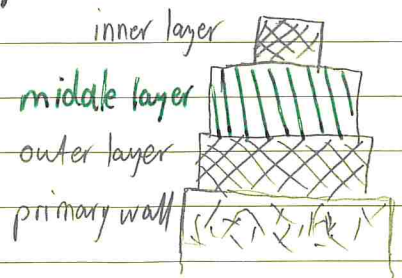 inner layer
middle layer
outer layer
primary wall